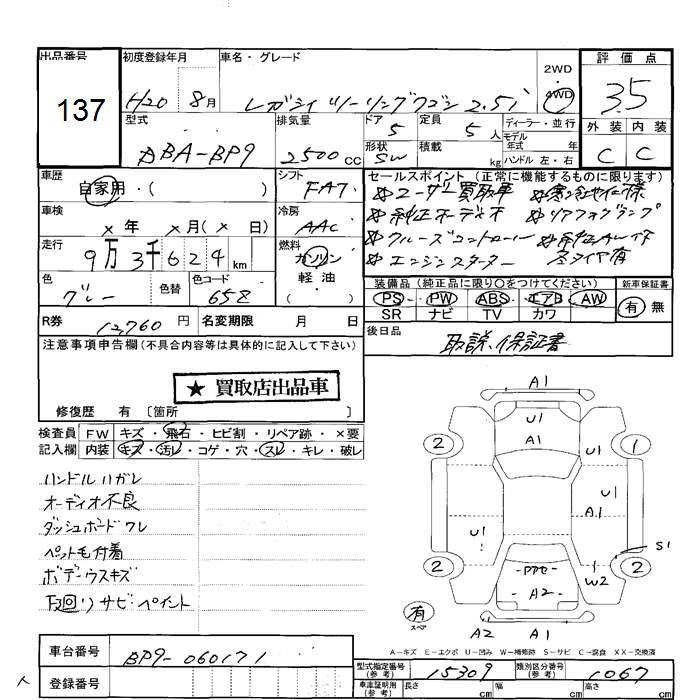 出品番号
137
初度登録年月
H20 8月
車名・グレード
レガシイ ツーリングワゴン 2.5i
2WD
4WD
評価点
3.5
外装 内装
C C
型式
DBA-BP9
排気量
2500cc
ドア 5
定員 5人
ディーラー・並行
モデル
年式 年
形状 SW
積載 kg
ハンドル 左・右
車歴
自家用・( )
シフト
FAT
車検
× 年 × 月( × 日)
冷房
AAC
走行
9万3千624km
燃料
ガソリン
軽油
( )
色
グレー
色替
色コード
658
R券
12,760円
名変期限 月 日
セールスポイント(正常に機能するものに限ります)
ユーザー買取車 寒冷地仕様
純正オーディオ リアフォグランプ
クルーズコントロール 純正ALイイ
エンジンスターター 冬タイヤ有
装備品(純正品に限り○をつけてください)
PS PW ABS エアB AW
SR ナビ TV カワ
新車保証書
有 無
後日品
取説、保証書
注意事項申告欄(不具合内容等は具体的に記入して下さい)
★買取店出品車
修復歴 有〔箇所 〕
検査員 FW キズ・飛石・ヒビ割・リペア跡・×要
記入欄 内装 キズ・汚レ・コゲ・穴・スレ・キレ・破レ
ハンドルハガレ
オーディオ不良
ダッシュボードワレ
ペット毛付着
ボデーウスキズ
下回りサビ・ペイント
A1
U1
A1
2
1
U1
U1
A1
U1
S1
2
2
W2
PPC
A2
有
スペア
A2 A1
A-キズ E-エクボ U-凹み W-補修跡 S-サビ C-腐食 XX-交換済
車台番号 BP9-060171
登録番号
型式指定番号
(参考)
15309
類別区分番号
(参考)
1067
車庫証明用
(参考)
長さ cm 幅 cm 高さ cm